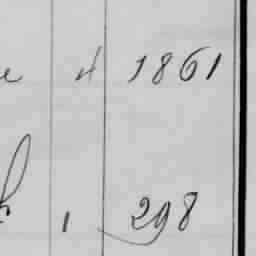 1861
1 298